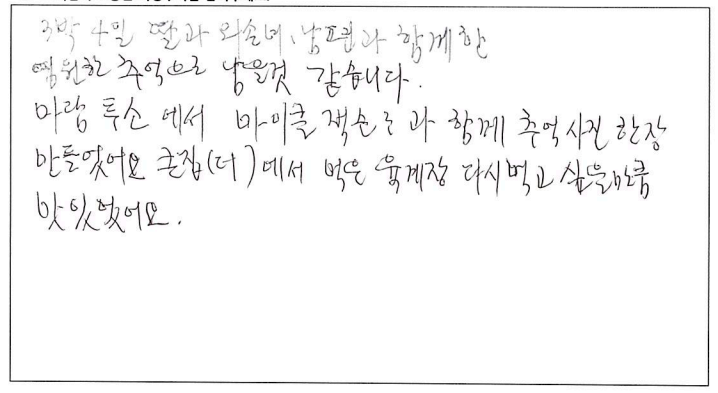 3박 4일 딸과 외손녀, 남편과 함께한
영원한 추억으로 남을것 같습니다.
마담 투소 에서 마이클 잭슨 과 함께 추억사진 한장
만들었어요 큰집(더)에서 먹은 육계장 다시먹고 싶을만큼
맛있었어요.